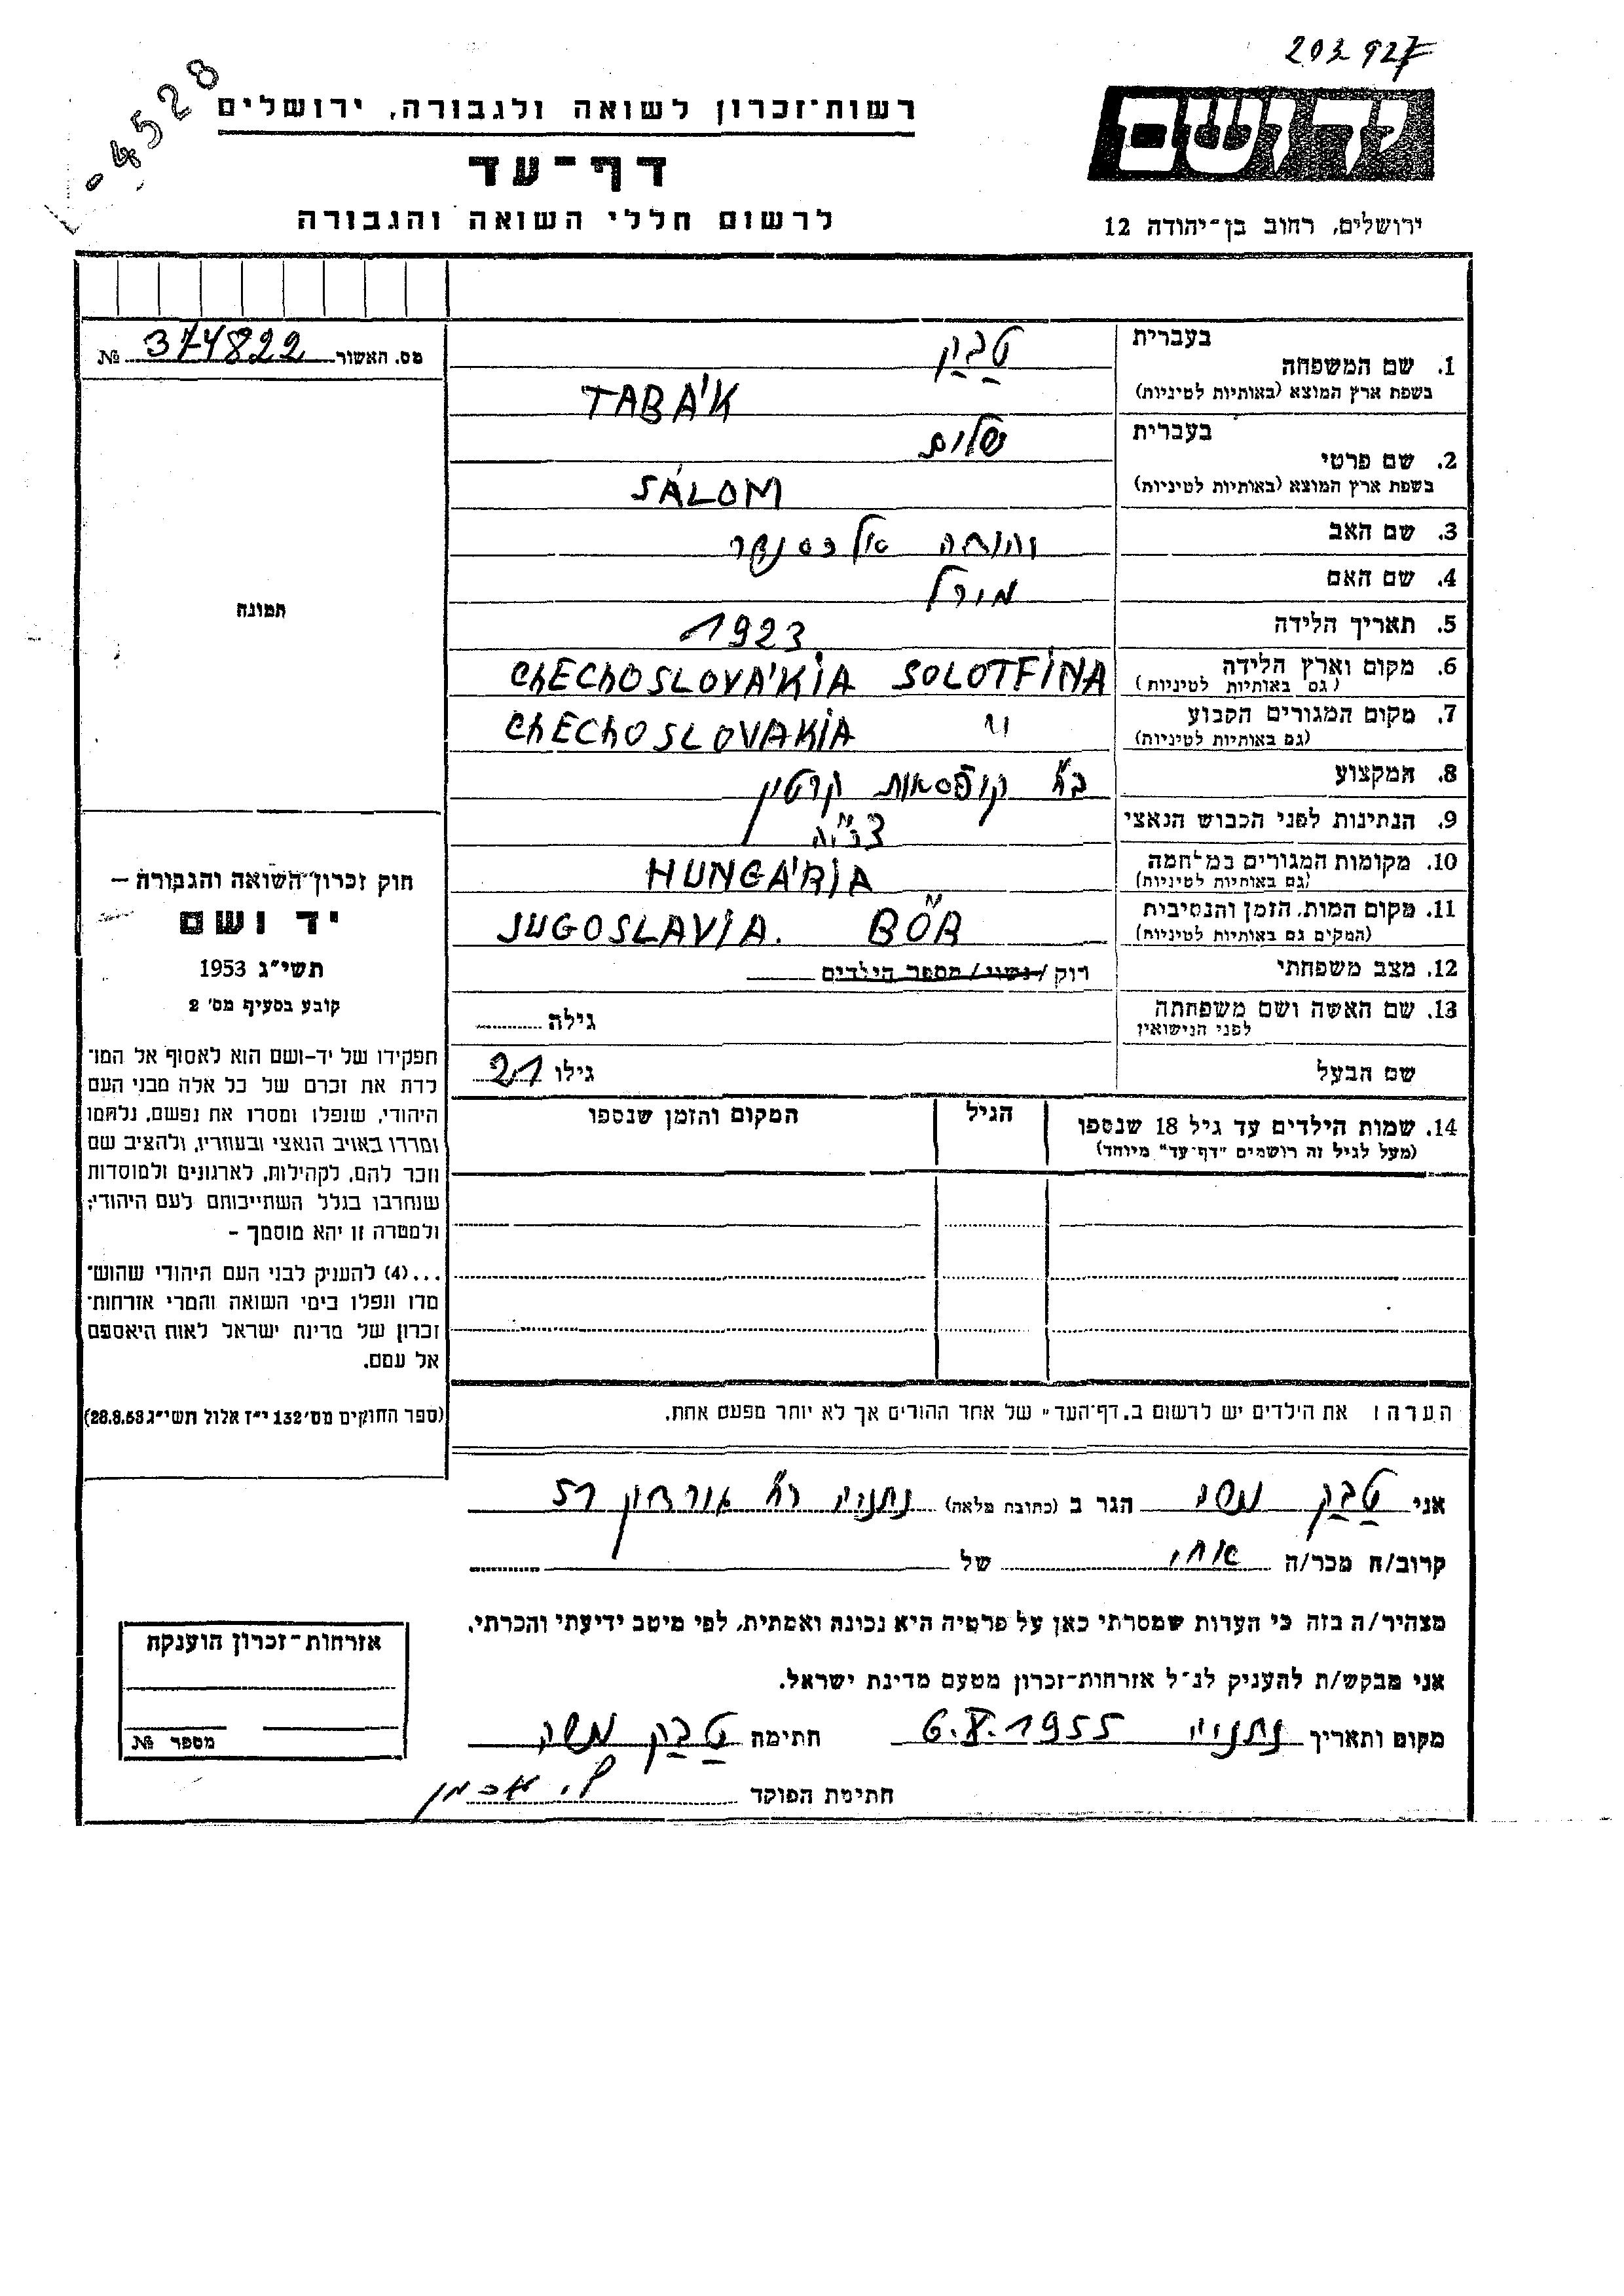 203927
-4528
רשות־זכרון לשואה ולגבורה, ירושלים
יד ושם
דף־עד
לרשום חללי השואה והגבורה
ירושלים, רחוב בן־יהודה 12
מס. האשור 374822 №
בעברית טבק
1. שם המשפחה
בשפת ארץ המוצא (באותיות לטיניות) TABA'K
בעברית שלום
2. שם פרטי
בשפת ארץ המוצא (באותיות לטיניות) SÁLOM
3. שם האב אלכסנדר
4. שם האם
5. תאריך הלידה 1923
6. מקום וארץ הלידה CHECHOSLOVA'KIA SOLOTFINA
(גם באותיות לטיניות)
7. מקום המגורים הקבוע CHECHOSLOVAKIA "
(גם באותיות לטיניות)
8. המקצוע קופסאות קרטון
9. הנתינות לפני הכבוש הנאצי
10. מקומות המגורים במלחמה HUNGA'RIA
(גם באותיות לטיניות)
11. מקום המות, הזמן והנסיבות JUGOSLAVIA. BŐR
(המקים גם באותיות לטיניות)
12. מצב משפחתי רוק / נשוי / מספר הילדים
13. שם האשה ושם משפחתה גילה
לפני הנישואין
שם הבעל גילו 21
14. שמות הילדים עד גיל 18 שנספו הגיל המקום והזמן שנספו
(מעל לגיל זה רושמים "דף־עד" מיוחד)
תמונה
חוק זכרון־השואה והגבורה —
יד ושם
תשי"ג 1953
קובע בסעיף מס' 2
תפקידו של יד-ושם הוא לאסוף אל המו־
לדת את זכרם של כל אלה מבני העם
היהודי, שנפלו ומסרו את נפשם, נלחמו
ומרדו באויב הנאצי ובעוזריו, ולהציב שם
וזכר להם, לקהילות, לארגונים ולמוסדות
שנחרבו בגלל השתייכותם לעם היהודי;
ולמטרה זו יהא מוסמך -
...(4) להעניק לבני העם היהודי שהוש־
מדו ונפלו בימי השואה והמרי אזרחות־
זכרון של מדינת ישראל לאות היאספם
אל עמם.
(ספר החוקים מס' 132 י"ז אלול תשי"ג 28.8.53)
הערה: את הילדים יש לרשום ב„דף־העד" של אחד ההורים אך לא יותר מפעם אחת.
אני טבק משה הגר ב (כתובת מלאה) נתניה 51
קרוב/ה מכר/ה אחי של
מצהיר/ה בזה כי העדות שמסרתי כאן על פרטיה היא נכונה ואמתית, לפי מיטב ידיעתי והכרתי.
אני מבקש/ת להעניק לנ"ל אזרחות-זכרון מטעם מדינת ישראל.
מקום ותאריך נתניה 6.X.1955 חתימה טבק משה
חתימת הפוקד
אזרחות-זכרון הוענקה
מספר №